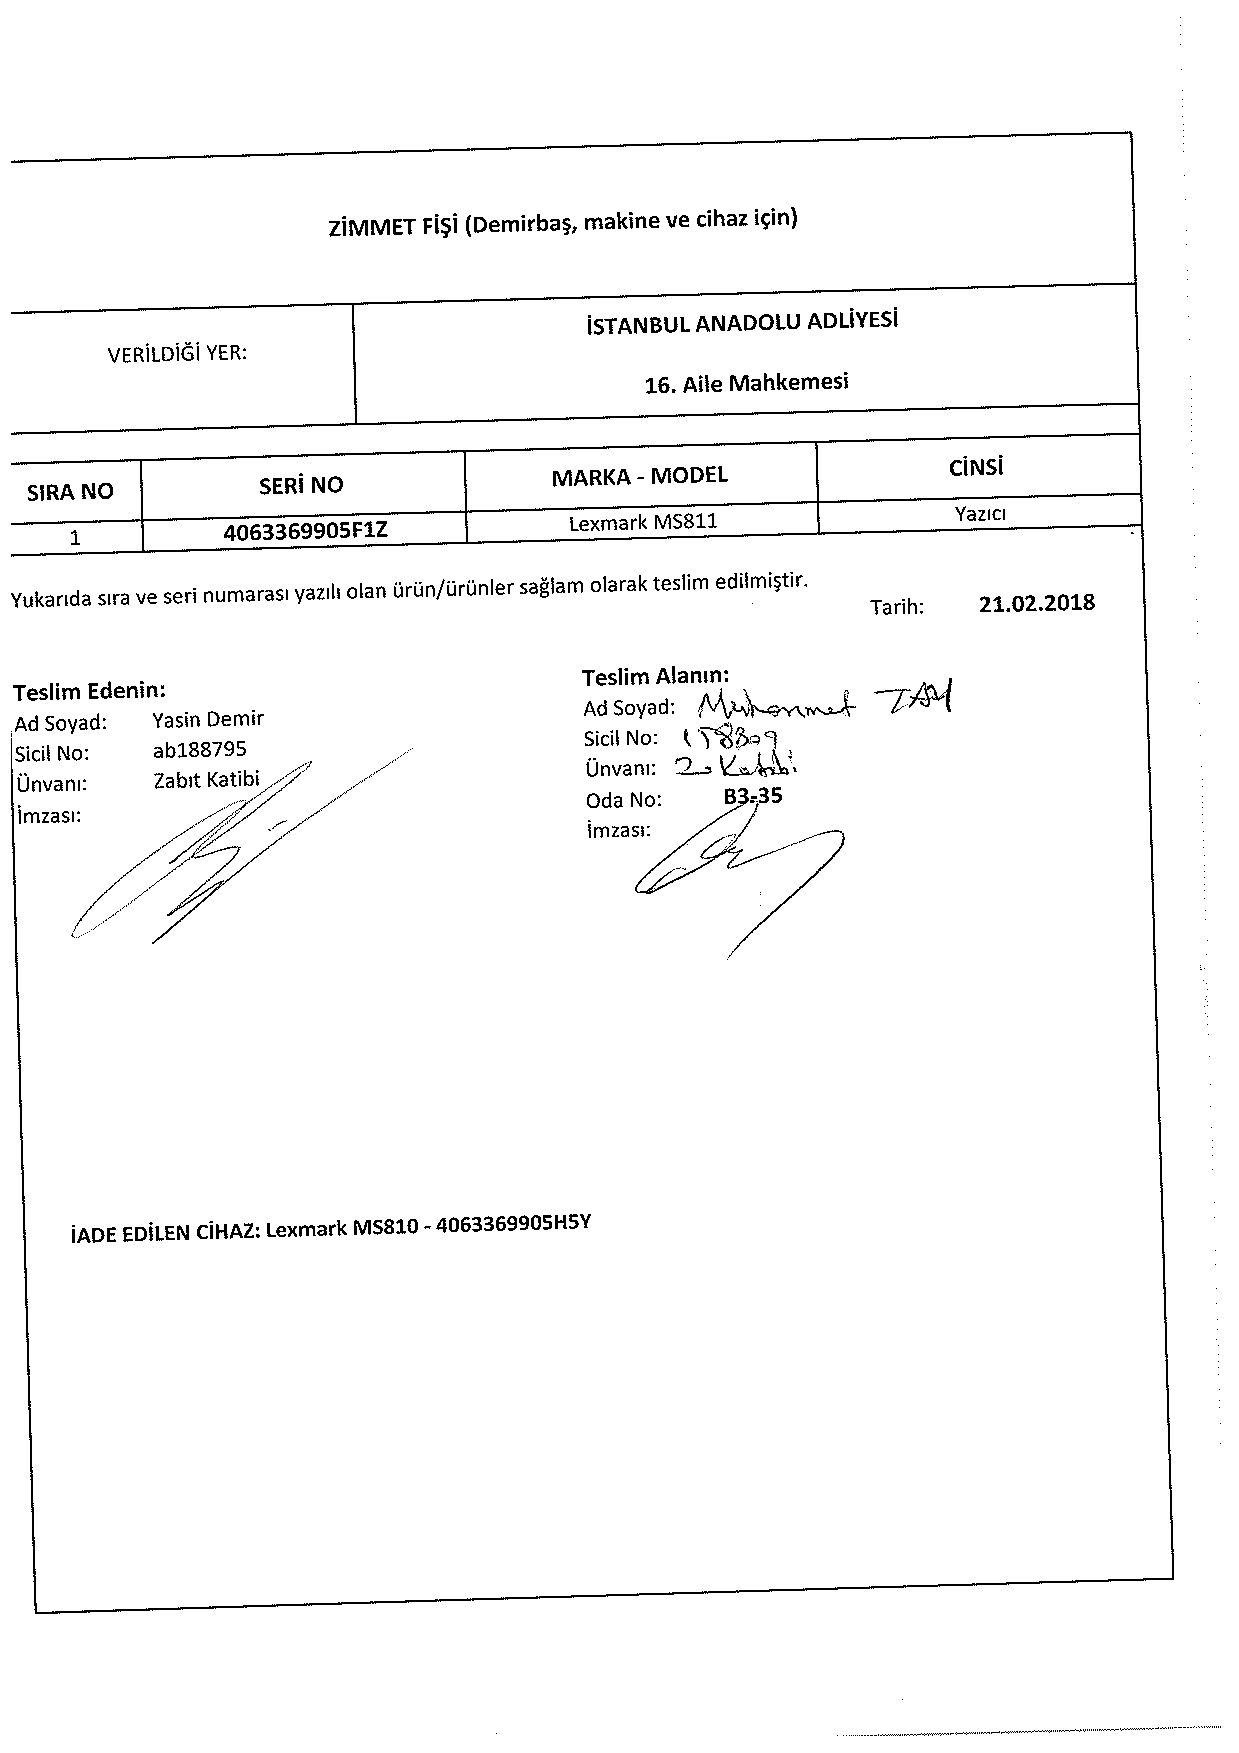 ZİMMET FİŞİ (Demirbaş, makine ve cihaz için)
VERİLDİĞİ YER:
İSTANBUL ANADOLU ADLİYESİ
16. Aile Mahkemesi
SIRA NO SERİ NO MARKA - MODEL CİNSİ
1 4063369905F1Z Lexmark MS811 Yazıcı
Yukarıda sıra ve seri numarası yazılı olan ürün/ürünler sağlam olarak teslim edilmiştir.
Tarih: 21.02.2018
Teslim Edenin:
Ad Soyad: Yasin Demir
Sicil No: ab188795
Ünvanı: Zabıt Katibi
İmzası:
Teslim Alanın:
Ad Soyad:
Sicil No:
Ünvanı: Katibi
Oda No: B3-35
İmzası:
İADE EDİLEN CİHAZ: Lexmark MS810 - 4063369905H5Y